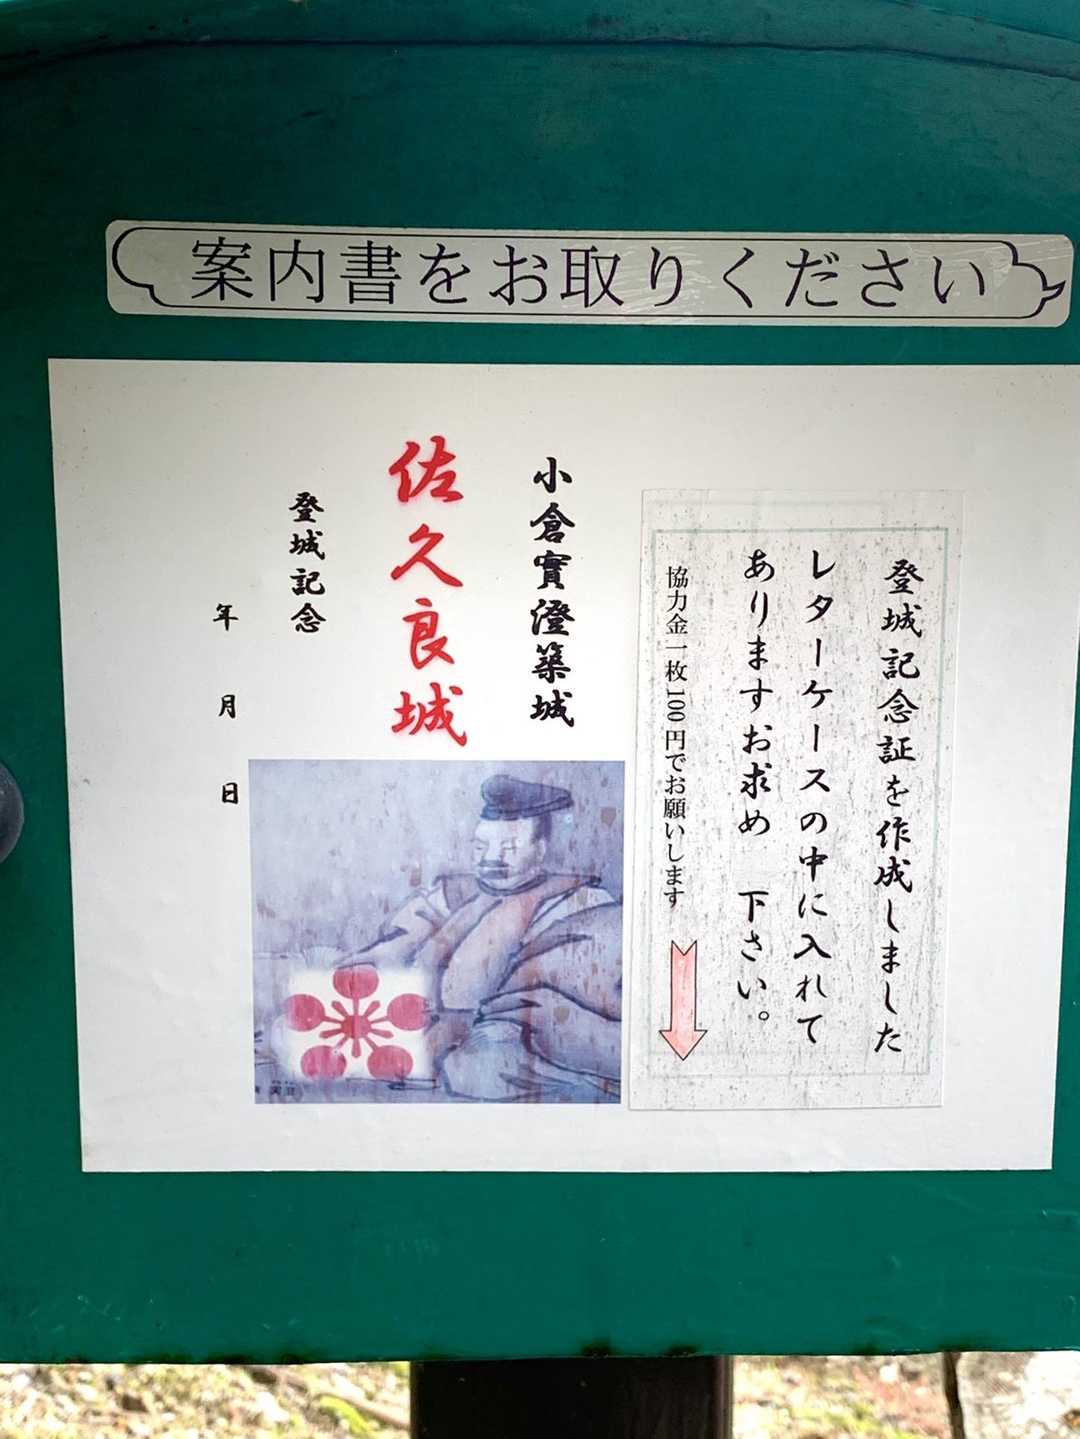 案内書をお取りください
登城記念証を作成しました
レターケースの中に入れて
ありますお求め 下さい。
協力金一枚100円でお願いします
小倉實澄築城
佐久良城
登城記念
年 月 日